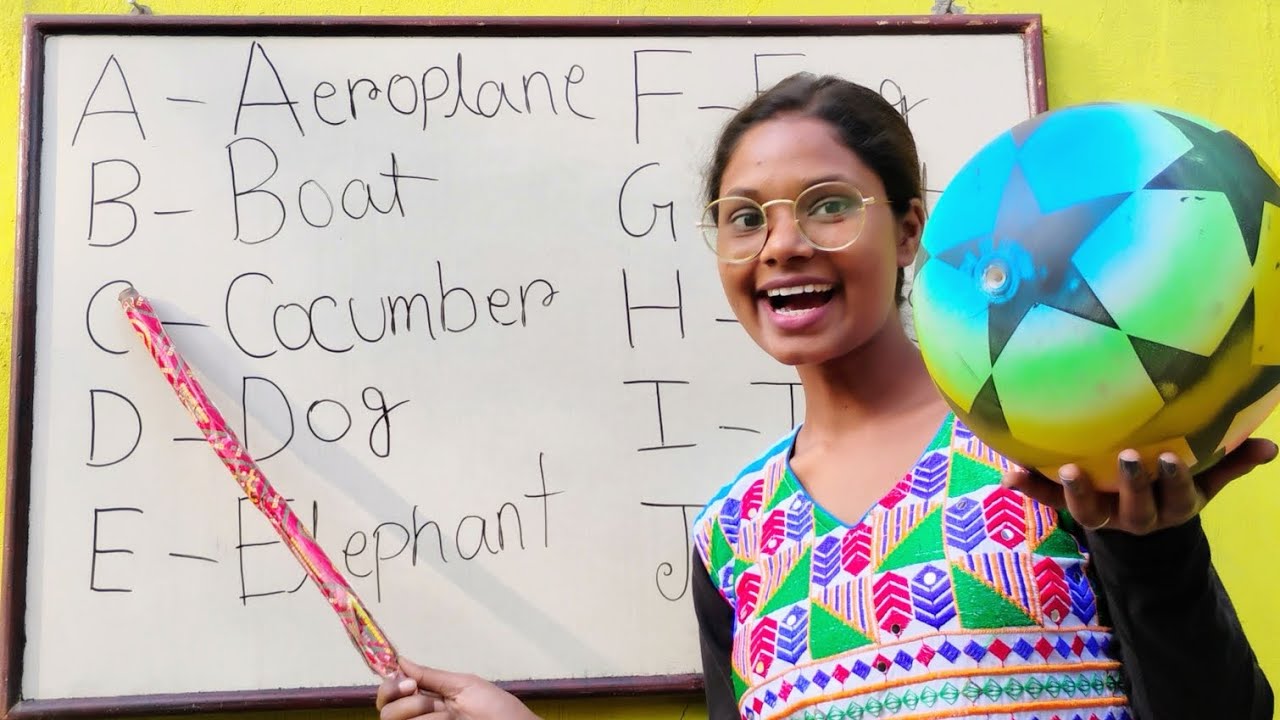 A - Aeroplane
B - Boat
C - Cocumber
D - Dog
E - Elephant
F -
G
H -
I -
J